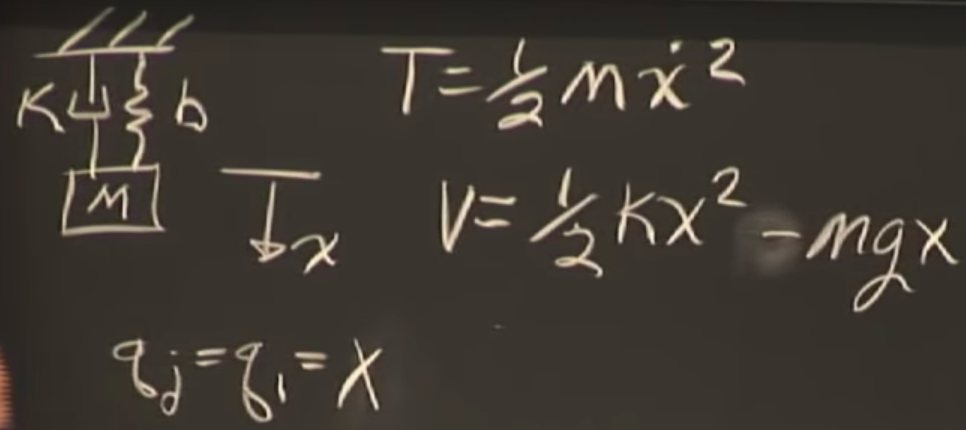 K b
M
x
T = ½ mẋ²
V = ½ kx² - mgx
qⱼ = q₁ = x